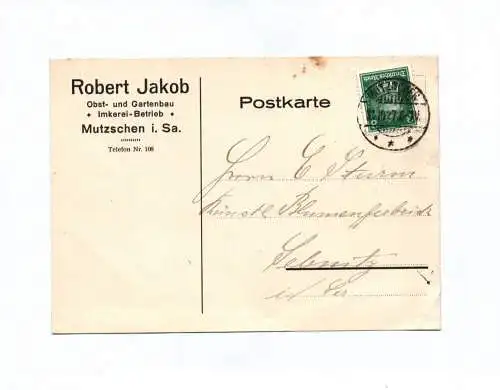 Robert Jakob
Obst- und Gartenbau
Imkerei-Betrieb
Mutzschen i. Sa.
Telefon Nr. 108
Postkarte
Deutsches Reich
Herrn E Sturm
Künstl Blumenfabrik
Sebnitz
i/Sa